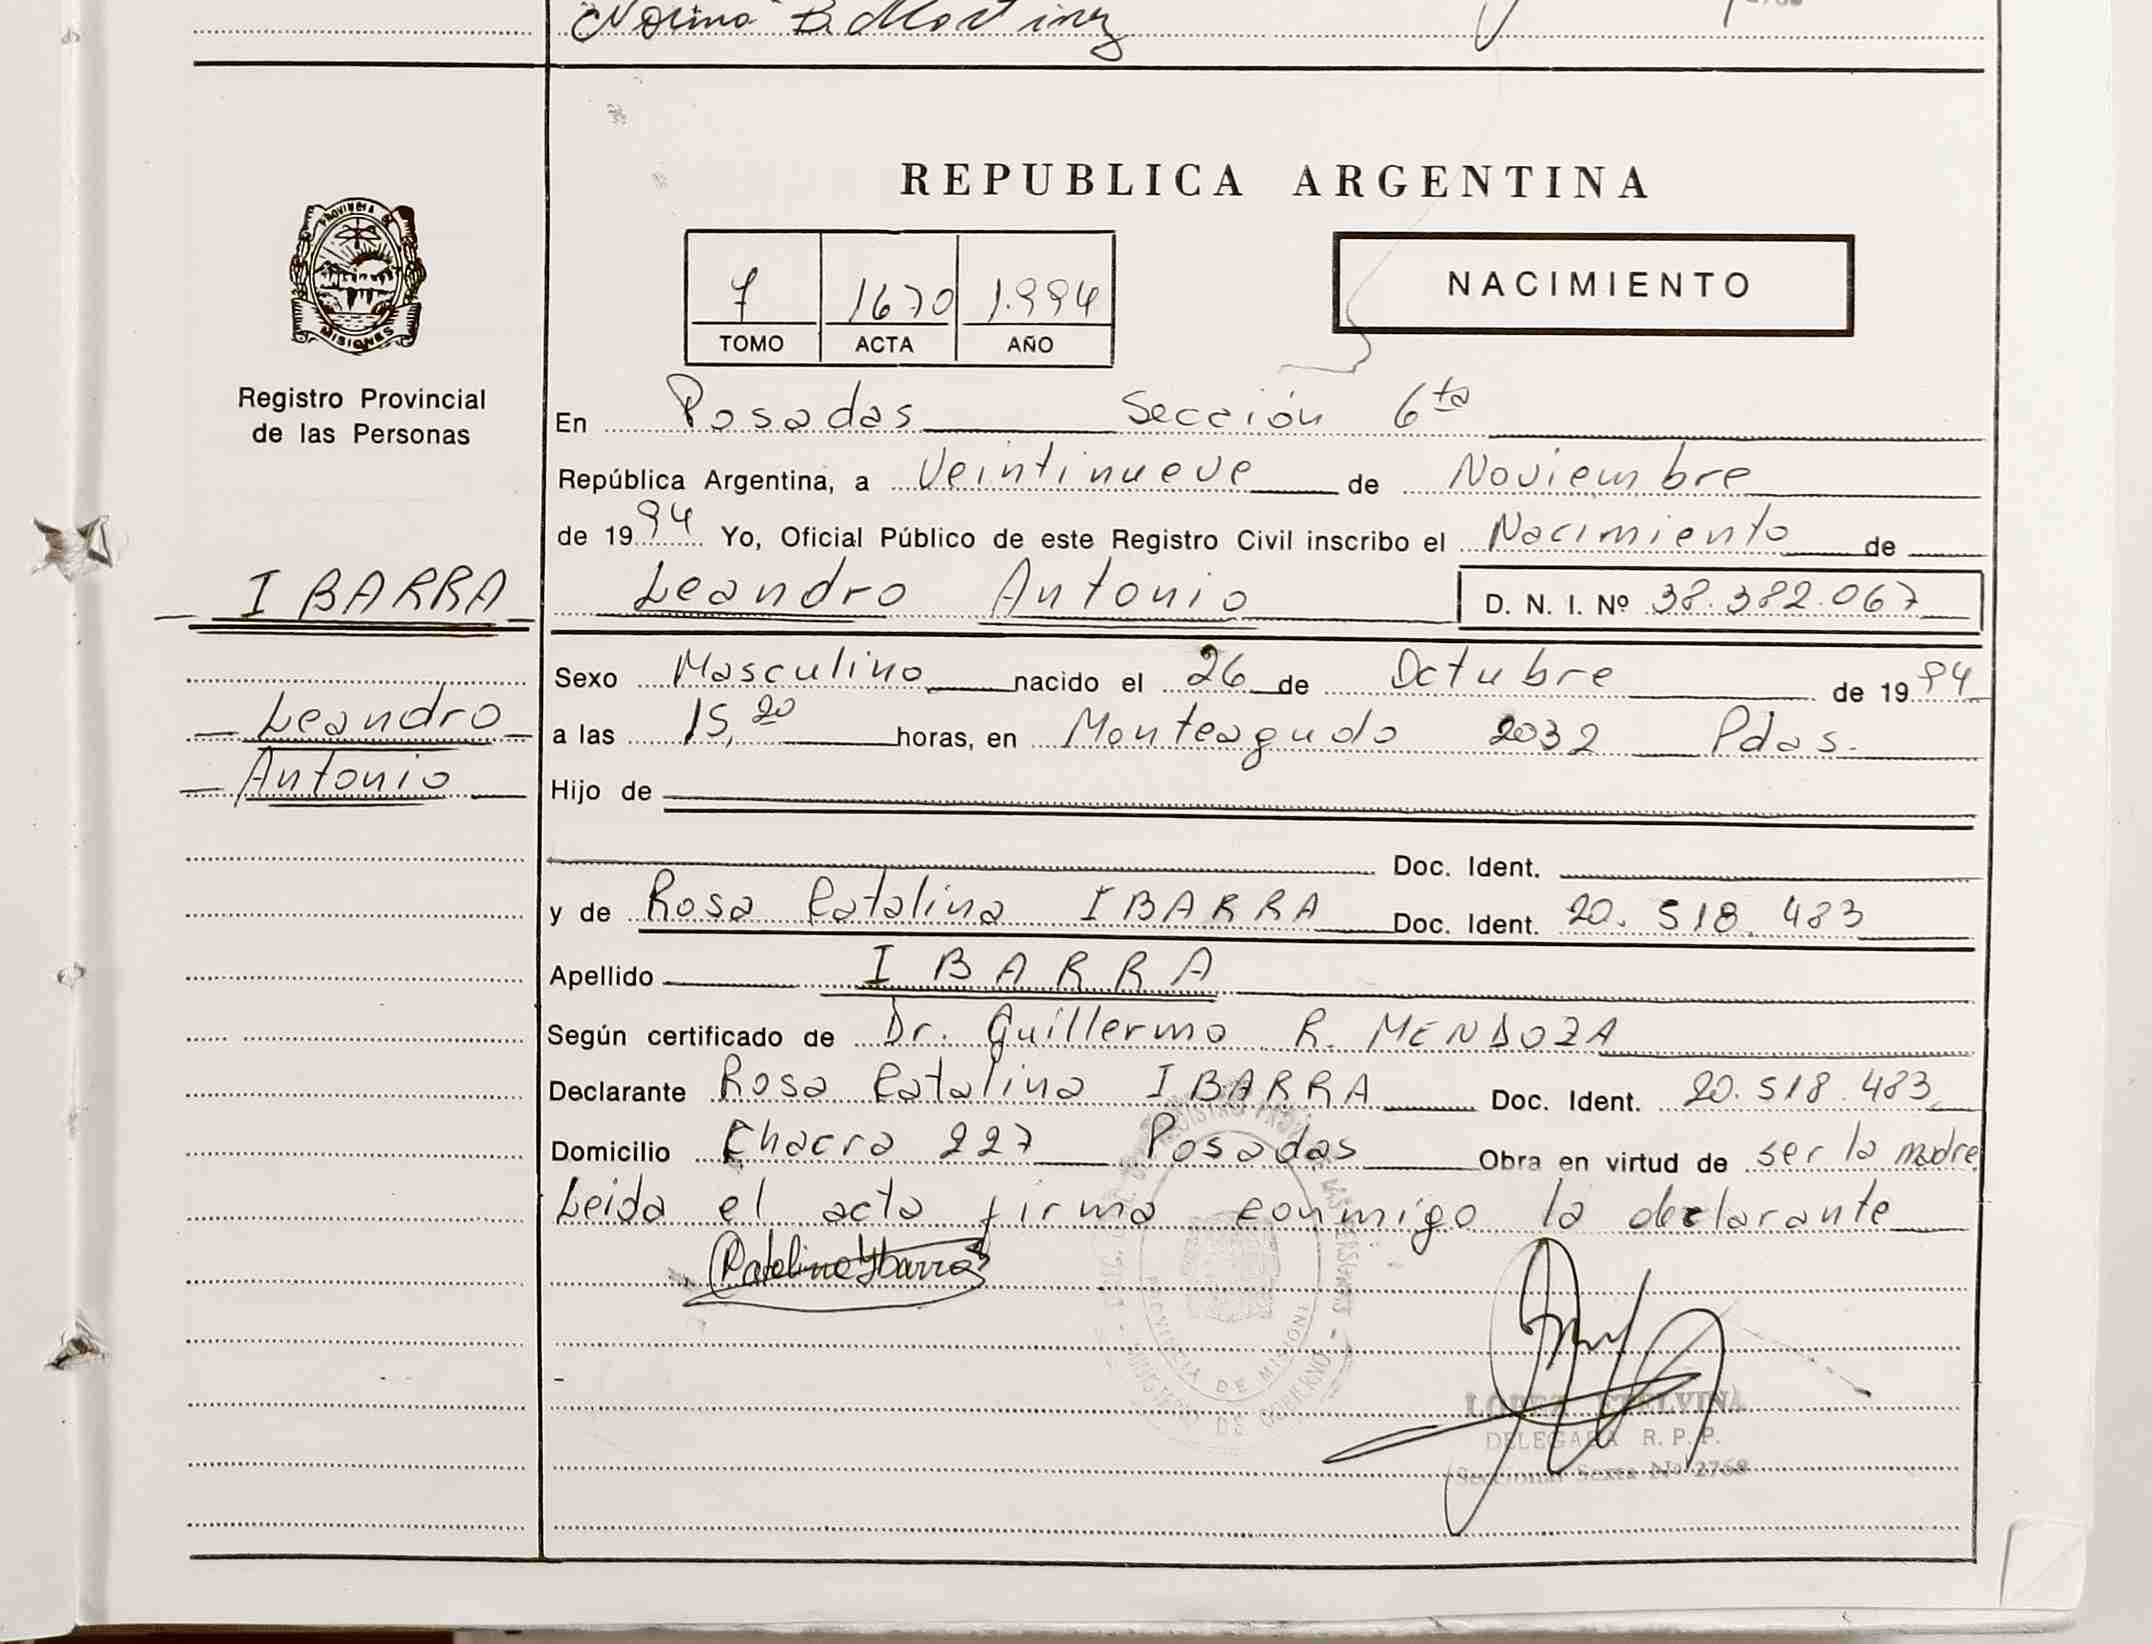 Norma B. Martinez
REPUBLICA ARGENTINA
PROVINCIA DE
MISIONES
7 1670 1.994
TOMO ACTA AÑO
NACIMIENTO
Registro Provincial
de las Personas
En Posadas Sección 6ta
República Argentina, a Veintinueve de Noviembre
de 1994 Yo, Oficial Público de este Registro Civil inscribo el Nacimiento de
IBARRA
Leandro Antonio D. N. I. Nº 38.382.067
Sexo Masculino nacido el 26 de Octubre de 1994
Leandro
a las 15,20 horas, en Monteagudo 2032 Pdas.
Antonio
Hijo de
Doc. Ident.
y de Rosa Catalina IBARRA Doc. Ident. 20.518.483
Apellido IBARRA
Según certificado de Dr. Guillermo R. MENDOZA
Declarante Rosa Catalina IBARRA Doc. Ident. 20.518.483
Domicilio Chacra 227 Posadas Obra en virtud de ser la madre
Leida el acta firma conmigo la declarante
Catalina Ybarra
PROVINCIA DE MISIONES
MINISTERIO DE GOBIERNO
LOPEZ ETELVINA
DELEGADA R. P. P.
Seccional Sexta Nº 2768